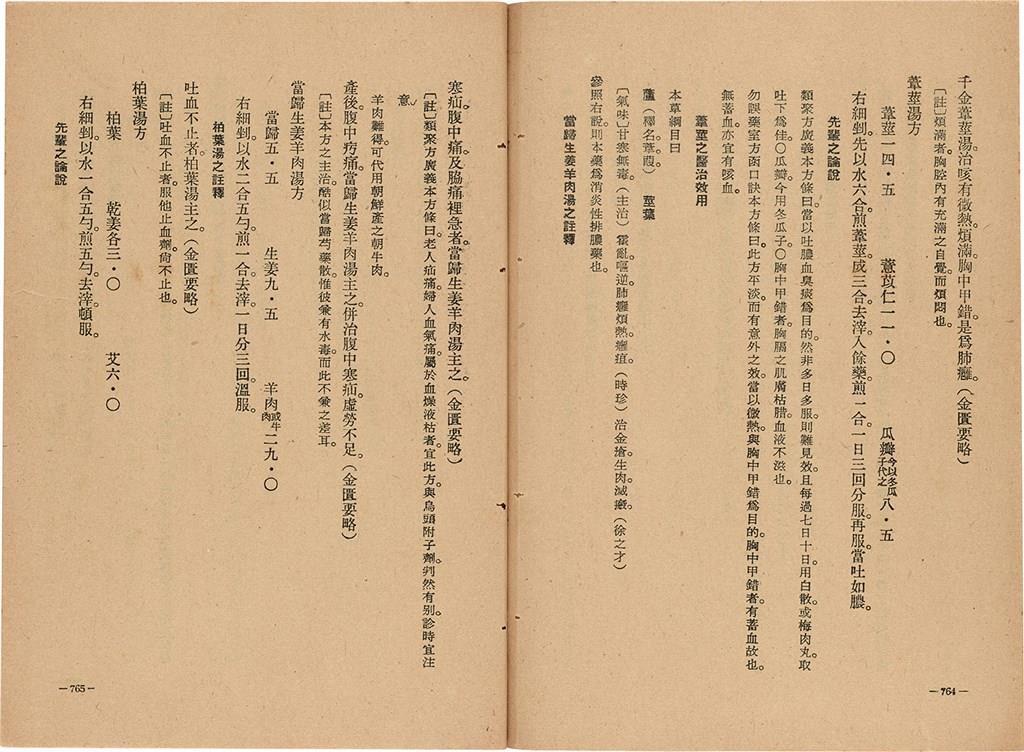 千金葦莖湯治咳有微熱煩滿。胸中甲錯。是爲肺癰。(金匱要略)
〔註〕煩滿者。胸腔內有充滿之自覺。而煩悶也。
葦莖湯方
葦莖一四・五 薏苡仁一一・〇 瓜瓣今以冬瓜子代之八・五
右細剉。先以水六合煎葦莖。成三合去滓。入餘藥。煎一合。一日三回分服。再服當吐如膿。
先輩之論說
類聚方廣義本方條曰。當以吐膿血臭痰爲目的。然非多日多服則難見效。且每過七日十日。用白散或梅肉丸。取
吐下爲佳。〇瓜瓣今用冬瓜子。〇胸中甲錯者。胸膈之肌膚枯腊。血液不滋也。
勿誤藥室方函口訣本方條曰。此方平淡。而有意外之效。當以微熱與胸中甲錯爲目的。胸中甲錯者有蓄血故也。
無蓄血亦宜有咳血。
葦莖之醫治效用
本草綱目曰
蘆(釋名。葦葭) 莖葉
〔氣味〕甘寒無毒。(主治) 霍亂嘔逆。肺癰煩熱。癰疽。(時珍) 治金瘡生肉滅瘢。(徐之才)
參照右說。則本藥爲消炎性排膿藥也。
當歸生姜羊肉湯之註釋
—764—
寒疝。腹中痛。及脇痛裡急者。當歸生姜羊肉湯主之。(金匱要略)
〔註〕類聚方廣義本方條曰。老人疝痛。婦人血氣痛。屬於血燥液枯者。宜此方。與烏頭附子劑。判然有別。診時宜注
意。
羊肉難得。可代用朝鮮產之朝牛肉。
產後。腹中㽲痛。當歸生姜羊肉湯主之。併治腹中寒疝。虛勞不足。(金匱要略)
〔註〕本方之主治。酷似當歸芍藥散。惟彼兼有水毒。而此不兼之差耳。
當歸生姜羊肉湯方
當歸五・五 生姜九・五 羊肉或牛肉二九・〇
右細剉。以水二合五勺。煎一合。去滓。一日分三回溫服。
柏葉湯之註釋
吐血不止者。柏葉湯主之。(金匱要略)
〔註〕吐血不止者。服他止血劑。尙不止也。
柏葉湯方
柏葉 乾姜各三・〇 艾六・〇
右細剉。以水一合五勺。煎五勺。去滓。頓服。
先輩之論說
—765—